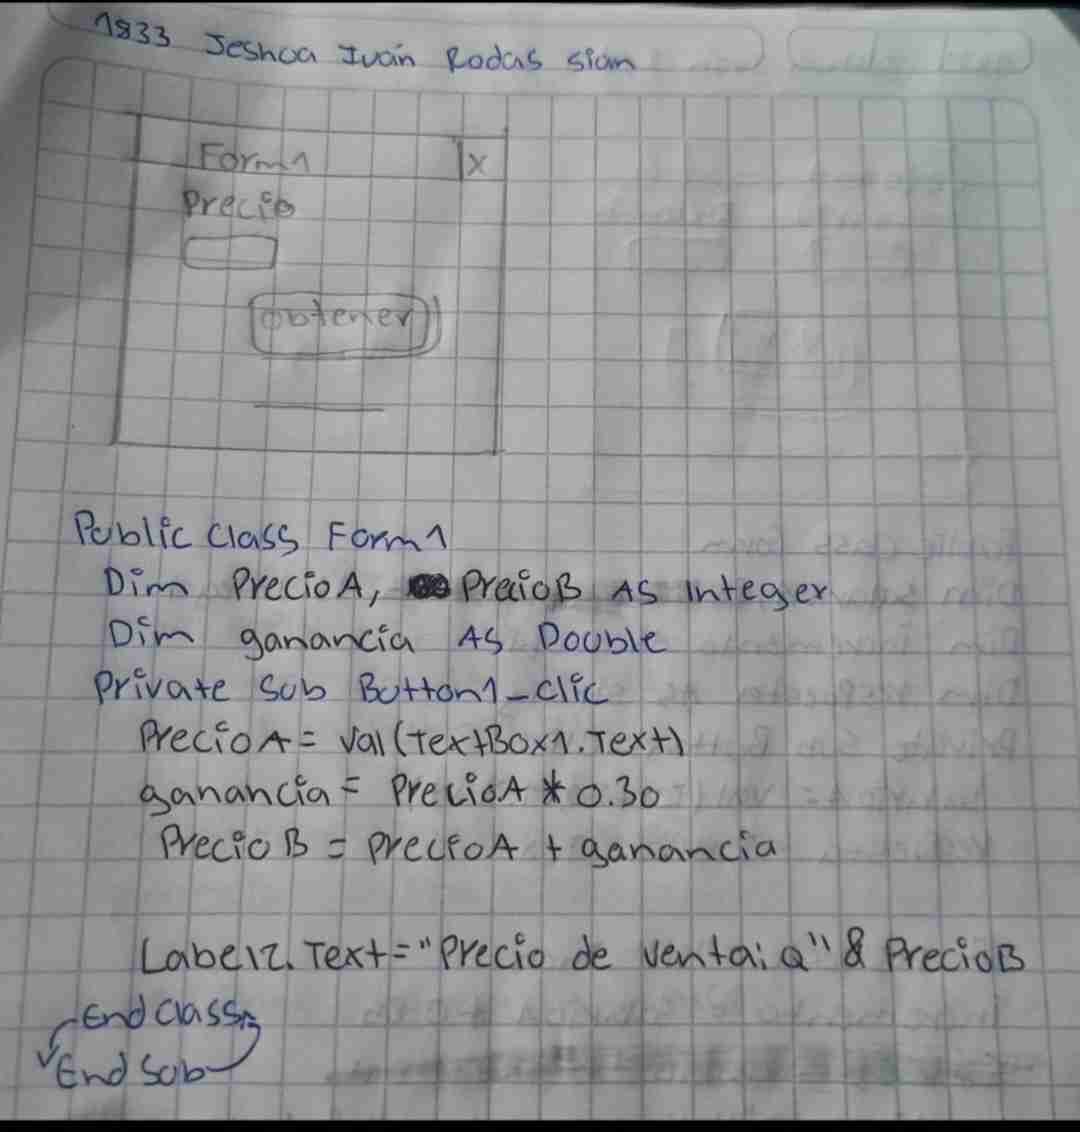 1833 Jeshua Iván Rodas sian
Form1 X
Precio
obtener
Public Class Form1
Dim PrecioA, PrecioB As Integer
Dim ganancia As Double
Private Sub Button1_clic
PrecioA = Val(TextBox1.Text)
ganancia = PrecioA * 0.30
PrecioB = precioA + ganancia
Label2.Text = "Precio de venta: Q" & PrecioB
End class
End Sub